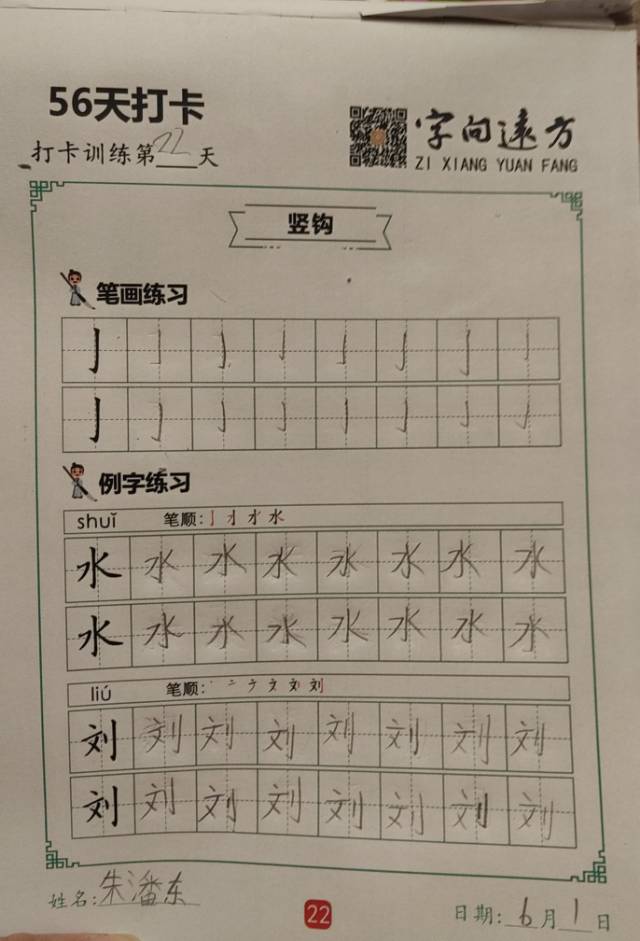 56天打卡
打卡训练第22天
字向远方
ZI XIANG YUAN FANG
竖钩
笔画练习
亅亅亅亅亅亅亅亅
亅亅亅亅亅亅亅亅
例字练习
shuǐ 笔顺:
水水水水水水水水
水水水水水水水水
liú 笔顺:
刘刘刘刘刘刘刘刘
刘刘刘刘刘刘刘刘
姓名:朱潘东
22
日期:6月1日